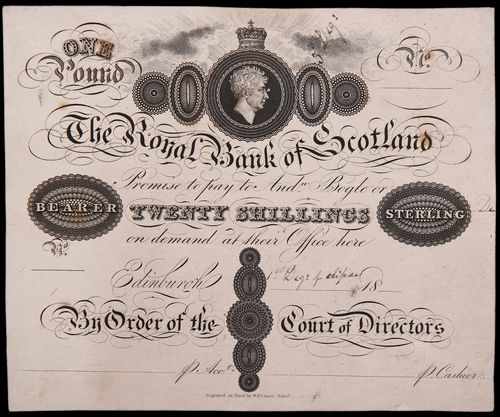 ONE
Pound
No.
The Royal Bank of Scotland
Promise to pay to Andw. Bogle or
BEARER TWENTY SHILLINGS STERLING
on demand at their Office here
No.
Edinburgh 18
By Order of the Court of Directors
P. Acct. P. Cashier
Engraved on Steel by W.H. Lizars, Edinr.